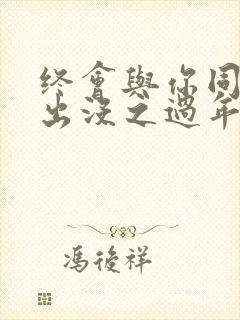 终會與你同
出没之過年
馮後祥